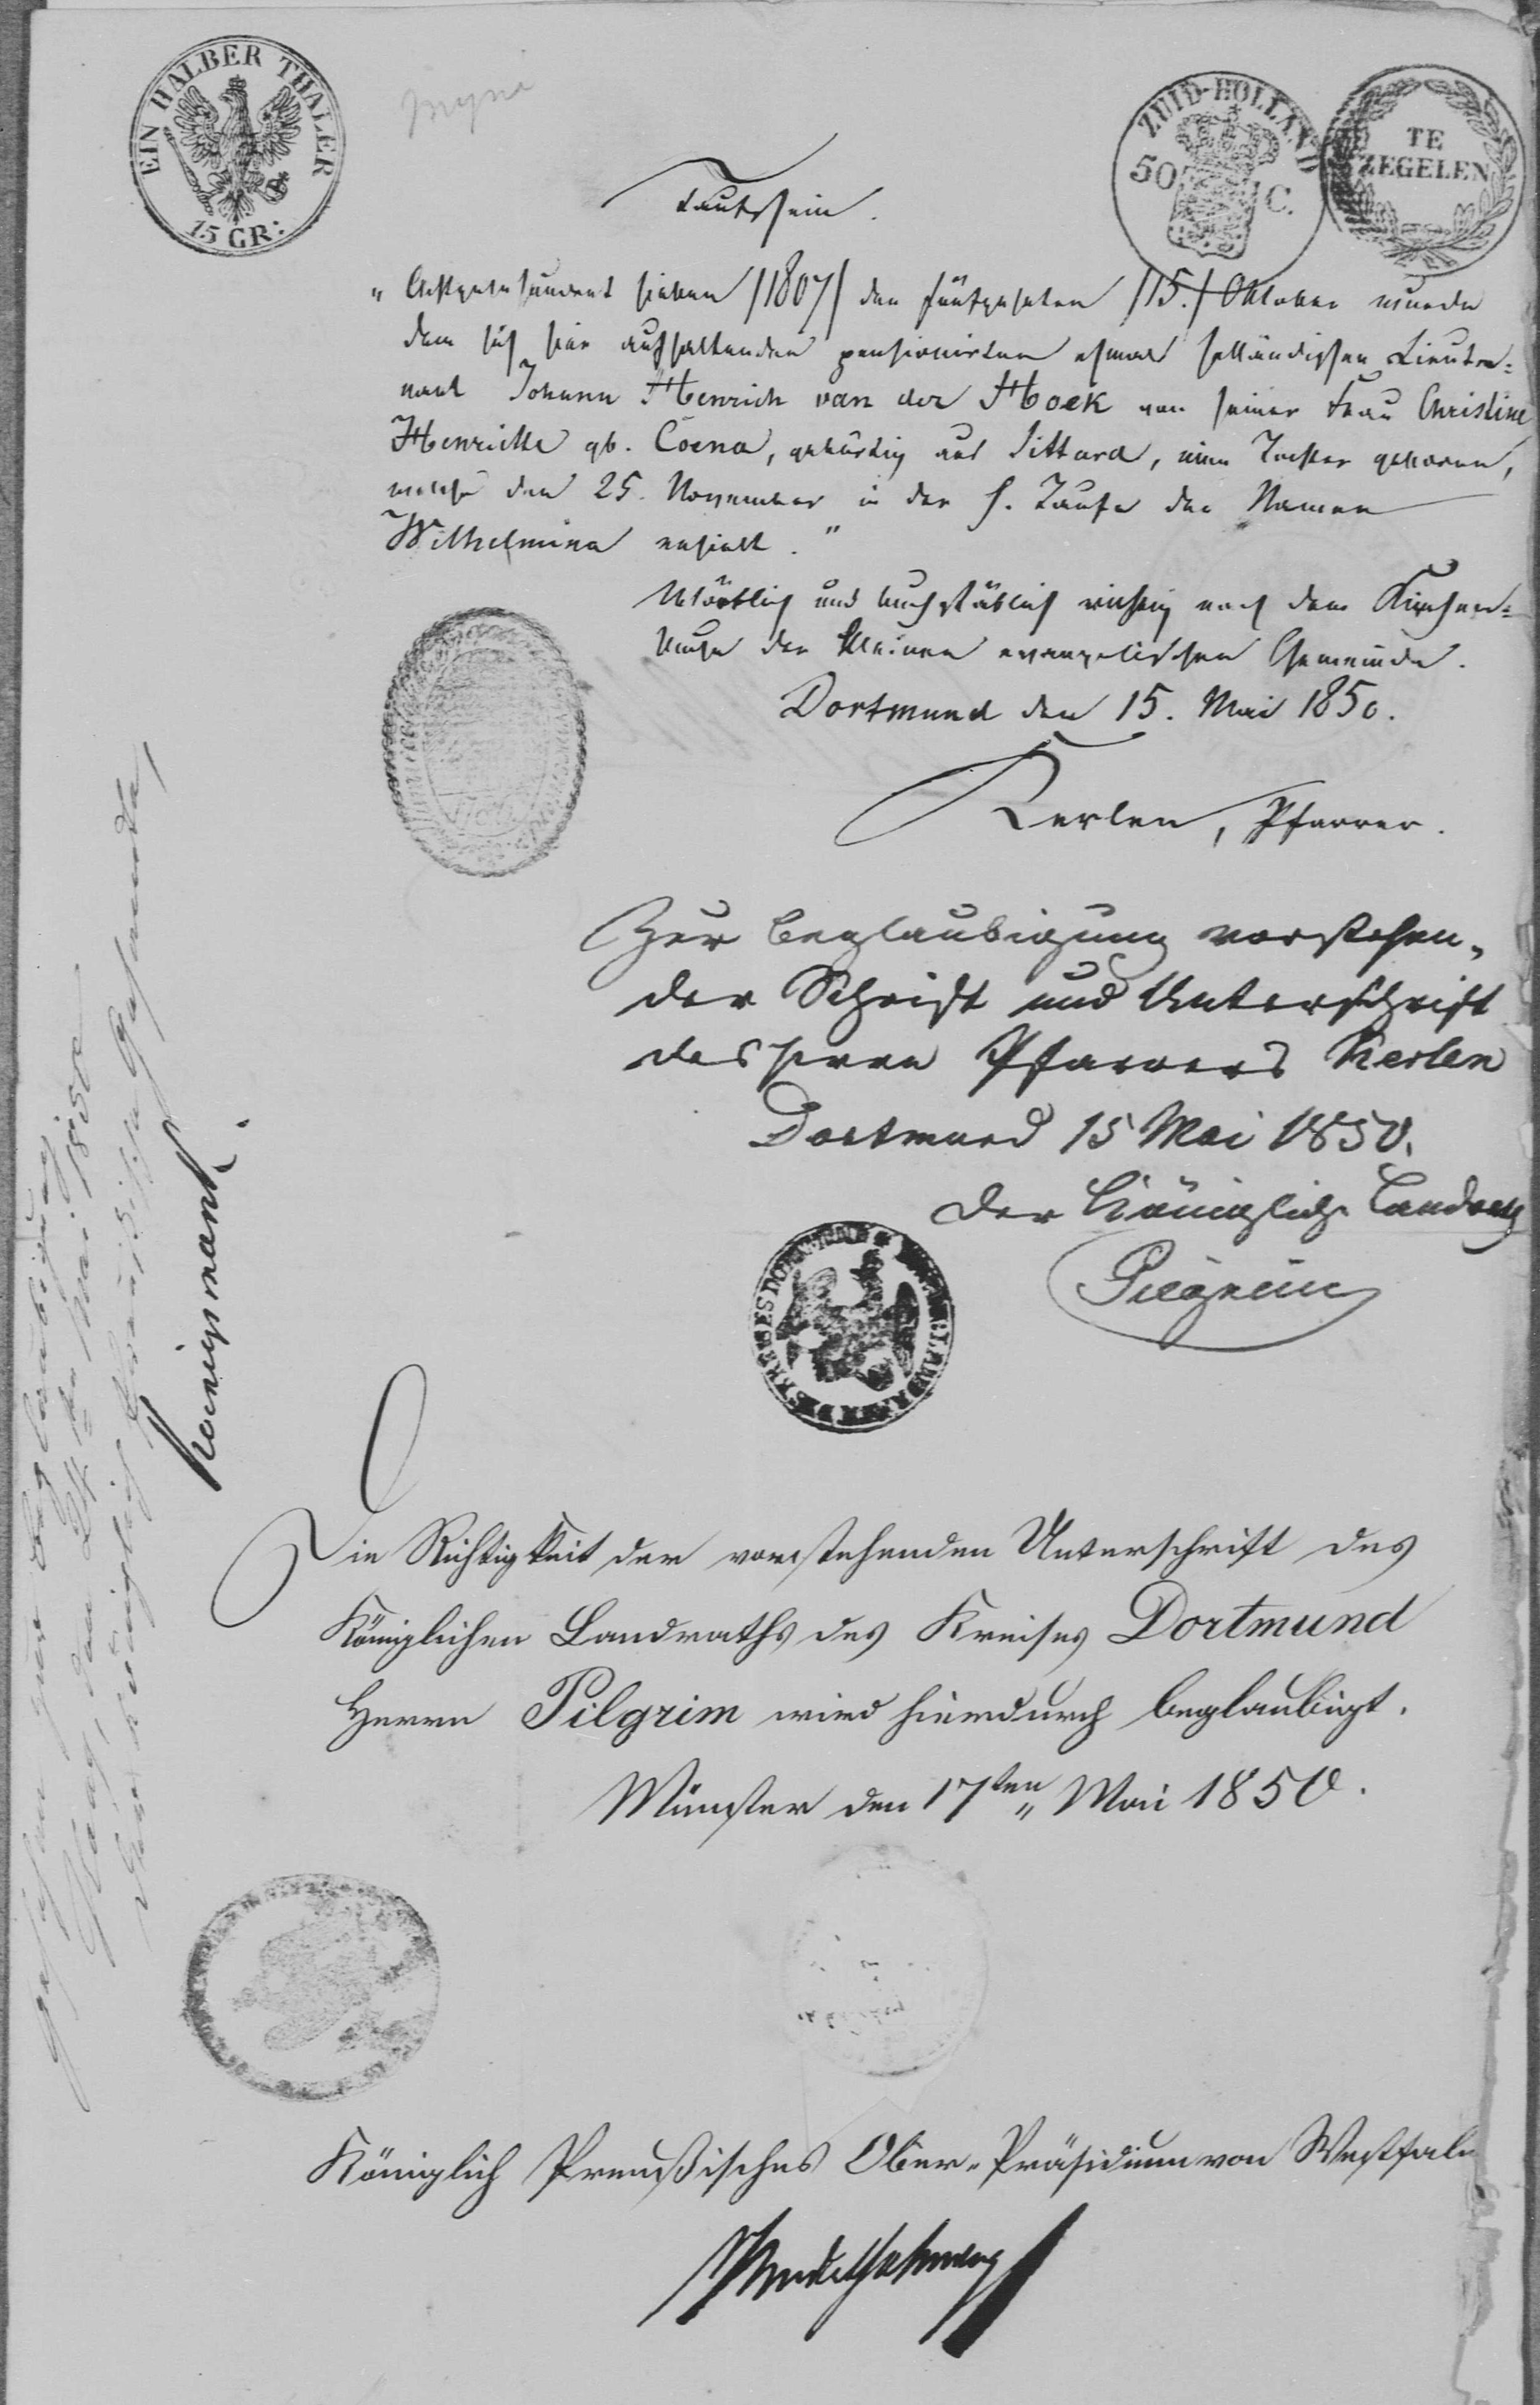 EIN HALBER THALER
15 GR:
ZUID-HOLLAND
50 C.
TE
ZEGELEN
Taufschein.
„Achtzehnhundert sieben /1807/ den fünfzehnten /15./ Oktober wurde
dem sich hier aufhaltenden pensionirten ehmal. holländischen Lieute=
nant Johann Henrich van der Hoek von seiner Frau Christine
Henriette gb. Coena, gebürtig aus Sittard, eine Tochter geboren,
welche den 25. November in der h. Taufe den Namen
Wilhelmina erhielt."
Wörtlich und buchstäblich richtig nach dem Kirchen=
buche der kleinen evangelischen Gemeinde.
Dortmund den 15. Mai 1850.
Kerlen, Pfarrer.
Zur Beglaubigung vorstehen-
der Schrift und Unterschrift
des Herrn Pfarrers Kerlen
Dortmund 15 Mai 1850.
Der Königliche Landrath
Pilgrim
DES KREISES DORTMUND
Die Richtigkeit der vorstehenden Unterschrift des
Königlichen Landraths des Kreises Dortmund
Herrn Pilgrim wird hierdurch beglaubigt.
Münster den 17ten Mai 1850.
Königlich Preußisches Ober-Präsidium von Westfalen
Gesehen zur Beglaubigung
Haag, den 24ten Mai 1850
Der Königlich Preußische Gesandte,
Koenigsmark.